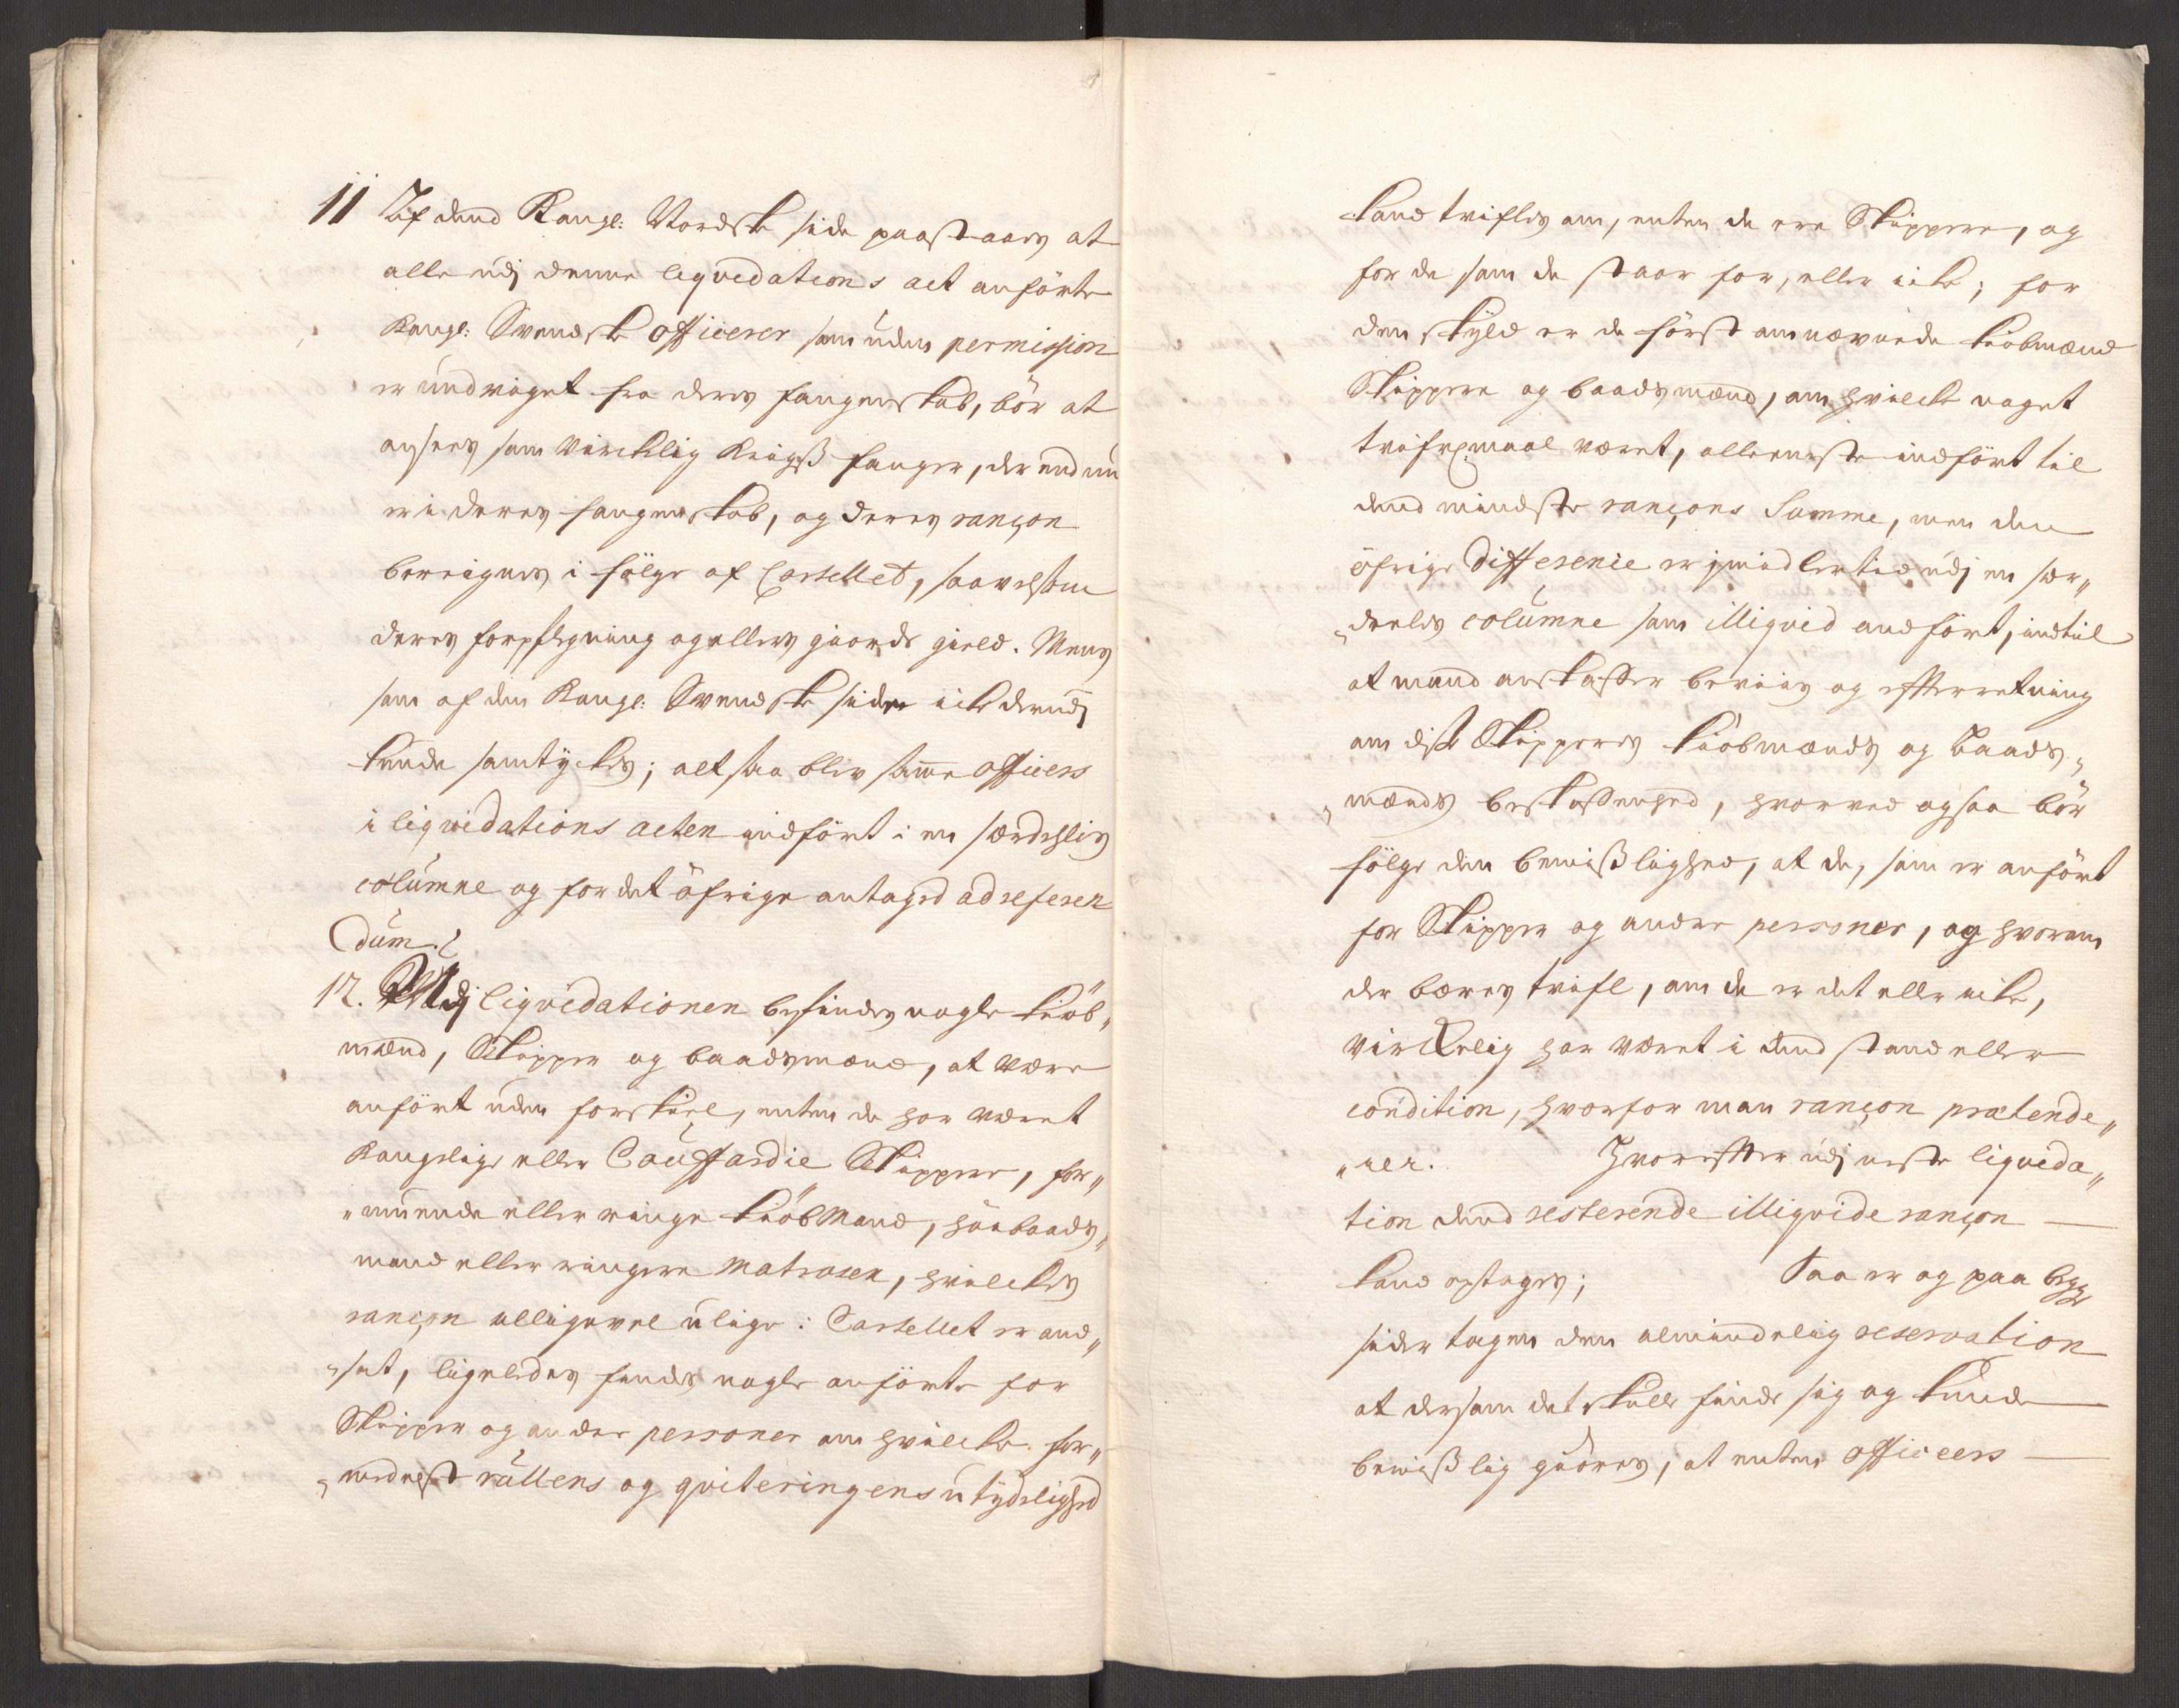 11 Af dend Kongl: Nordsk side paastaaes at
alle udj denne liqvidations act anförte
Kongl: Svendske Officerer som uden permission
er undviget fra deres fangenskab, bör at
ansees som virchlig Krigsß fanger, der end nu
er i deres fangenskab, og deres rançon
beregnes i fölge af Cartellet, saavelsom
deres forpflegning og ellers giorde gield. Mens
som af den Kongl: Svendske side icke derudj
kunde samtyckes; alt saa blev samme officers
i liqvidations acten indfört i en særdehlis
columne og for det öfrige antaged ad referen
dum.
12. Udj liqvidationen befindes nogle kiöb„
mænd, Skipper og baadsmænd, at være
anfört uden forskiel, enten de har været
Kongelige eller Couffardie Skippere, for„
„muende eller ringe kiöbmand, höibaads„
mand eller ringere Matrosen, hvilckes
rançon alligevel ulige i Cartellet er and„
„sat, ligeledes findes nogle anförte for
Skipper og andre personer om hvilcke for„
„medelst rullens og qviteringens utydelighed
kand tvifles om, enten de ere Skippere, og
for de som de staar for, eller icke; for
den skyld er de först omnævnede kiöbmænd
Skippere og baadsmænd, om hvilcke noget
tvifvelmaal været, alleeneste indfört til
dend mindste rançons Summe, men den
öfrige Difference er jmidlertid udj en sær„
„deelis columne som illiqvid andfört, indtil
at mand anskaffer beviis og efterretning
om diße Skipperes kiöbmænds og Baads„
„mænds beskaffenhed, hvorved ogsaa bör
fölge den bevißlighed, at de, som er anfört
for Skipper og andre personer, og hvorom
der bæres tvifl, om de er det eller icke,
virckelig har været i dend stand eller
condition, hvorfor man rançon prætende„
„rer. Hvorefter udj neste liqvida„
tion dend resterende illiqvide rançon
kand optages; Saa er og paa begge
sider tagen den almindelig reservation
at dersom det skulle finde sig og kunde
bevißlig giöres, at enten officeers